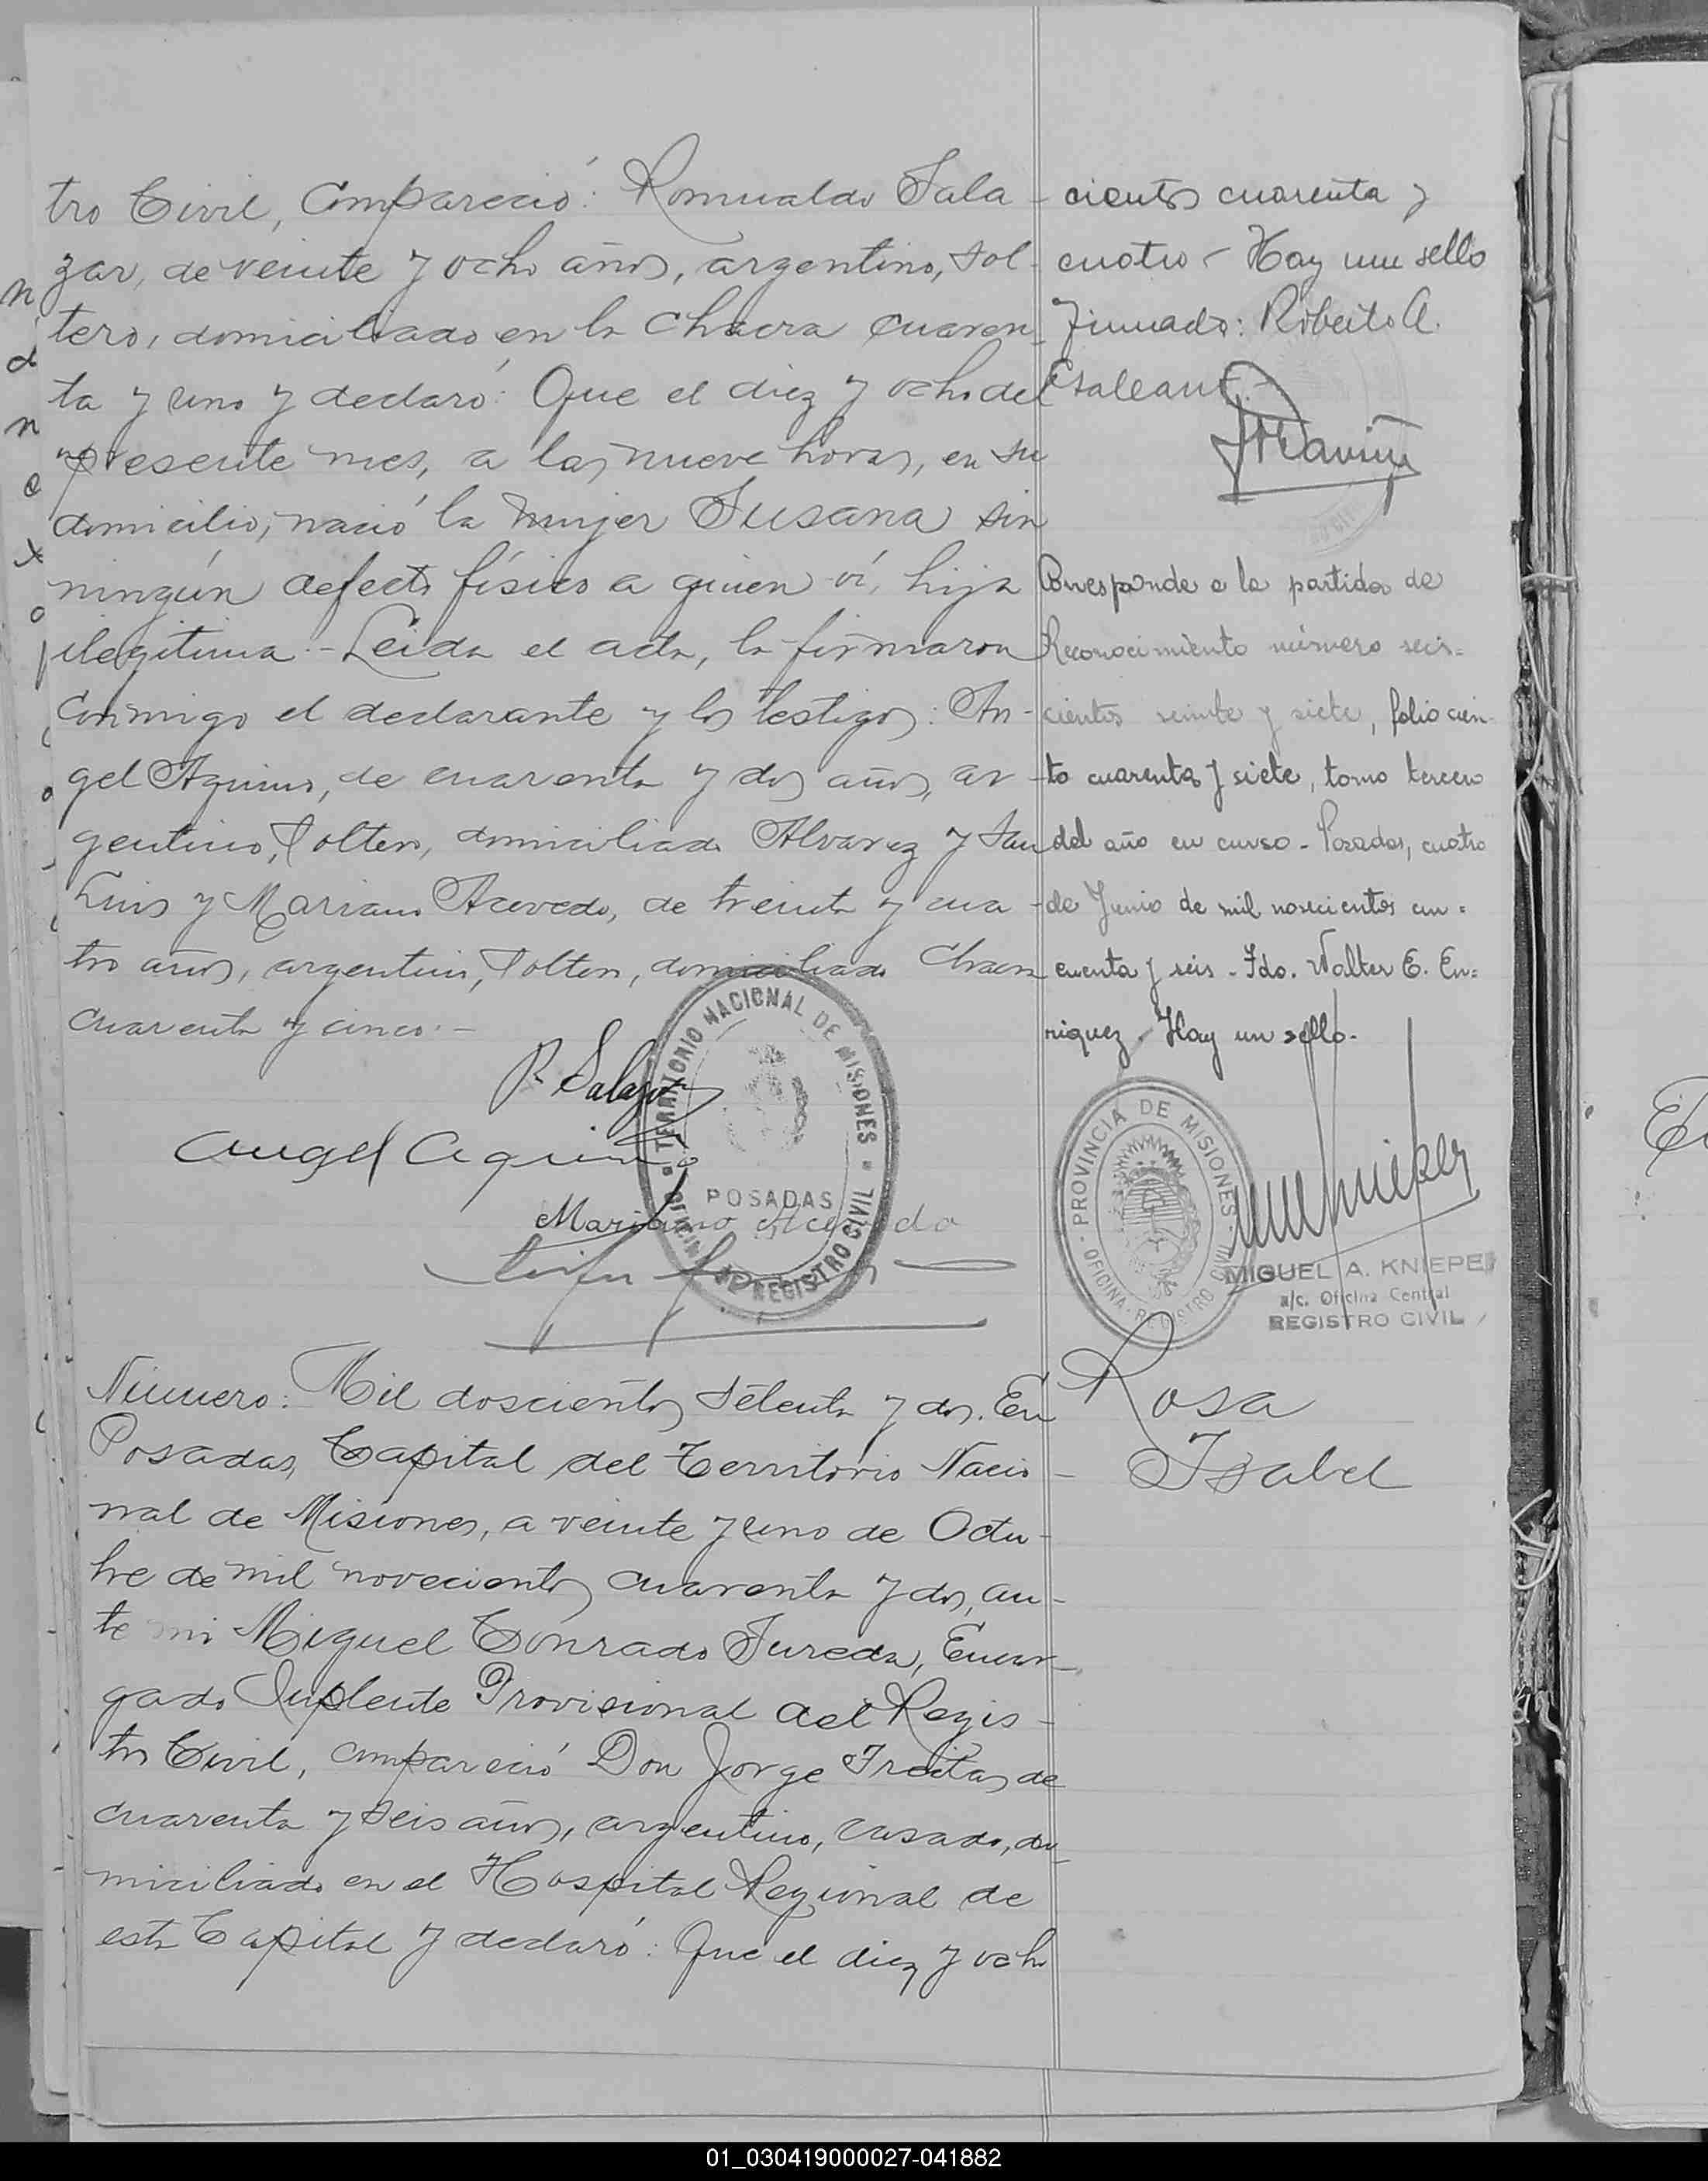 tro Civil, Compareció: Romualdo Sala
zar, de veinte y ocho años, argentino, sol-
tero, domiciliado en la Chacra cuaren-
ta y uno y declaró: Que el diez y ocho del
presente mes, a las nueve horas, en su
domicilio, nació la mujer Susana sin
ningún defecto físico a quien ví, hija
ilegitima.- Leida el acta, la firmaron
conmigo el declarante y los testigos: An-
gel Aquino, de cuarenta y dos años, ar-
gentino, soltero, domiciliado Alvarez y San
Luis y Mariano Acevedo, de treinta y cua-
tro años, argentino, soltero, domiciliado Chacra
cuarenta y cinco.-
R. Salazar
Angel Aquino
Mariano Acevedo
TERRITORIO NACIONAL DE MISIONES
POSADAS
OFICINA DE REGISTRO CIVIL
Número: Mil doscientos setenta y dos. En
Posadas, Capital del Territorio Nacio-
nal de Misiones, a veinte y uno de Octu-
bre de mil novecientos cuarenta y dos, an-
te mi Miguel Conrado Sureda, Encar-
gado Suplente Provisional del Regis-
tro Civil, compareció Don Jorge Freitas de
cuarenta y seis años, argentino, casado, do-
miciliado en el Hospital Regional de
esta Capital y declaró: Que el diez y ocho
cientos cuarenta y
cuatro - Hay un sello
Firmado: Roberto A.
Corresponde a la partida de
Reconocimiento número seis=
cientos veinte y siete, folio cien-
to cuarenta y siete, tomo tercero
del año en curso - Posadas, cuatro
de Junio de mil novecientos cin=
cuenta y seis - Fdo. Walter E. En=
riquez. Hay un sello.-
PROVINCIA DE MISIONES
OFICINA REGISTRO CIVIL
MIGUEL A. KNIEPER
a/c. Oficina Central
REGISTRO CIVIL
Rosa
Isabel
01_030419000027-041882